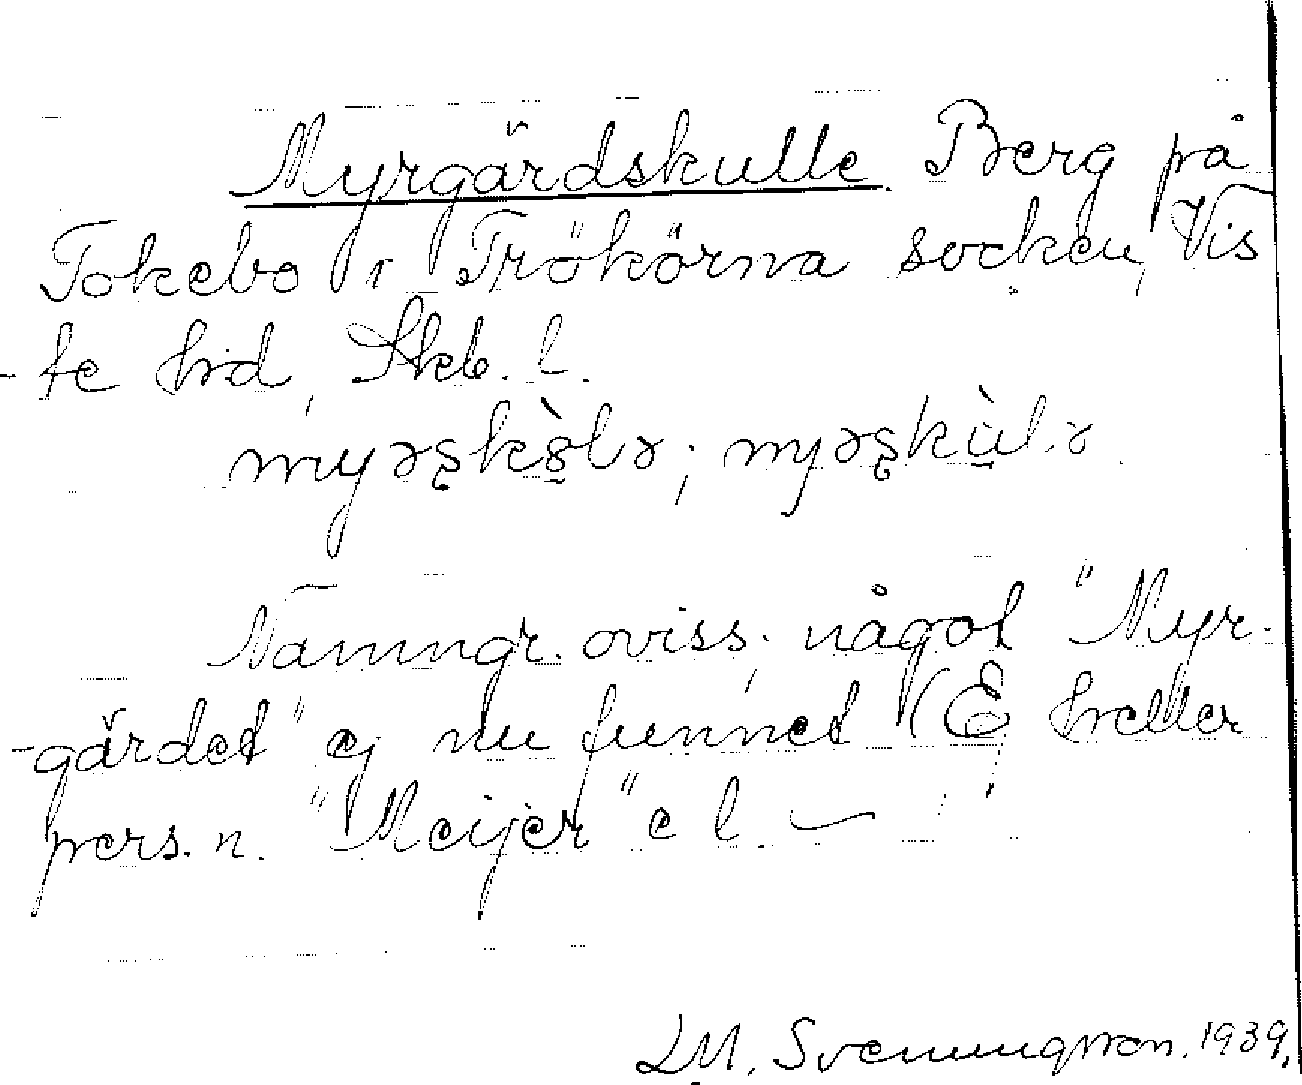 Myrgärdskulle. Berg på
Tokebo i Frökörna socken, Vis
-te hrd, Skb. l.
myrəʂkòlə; myəʂkùl.ə.
Namngr. oviss; något "Myr-
-gärdet" ej nu funnet (Ej heller
pers. n. "Meijer" e l. —
LM. Svenungsson. 1939.